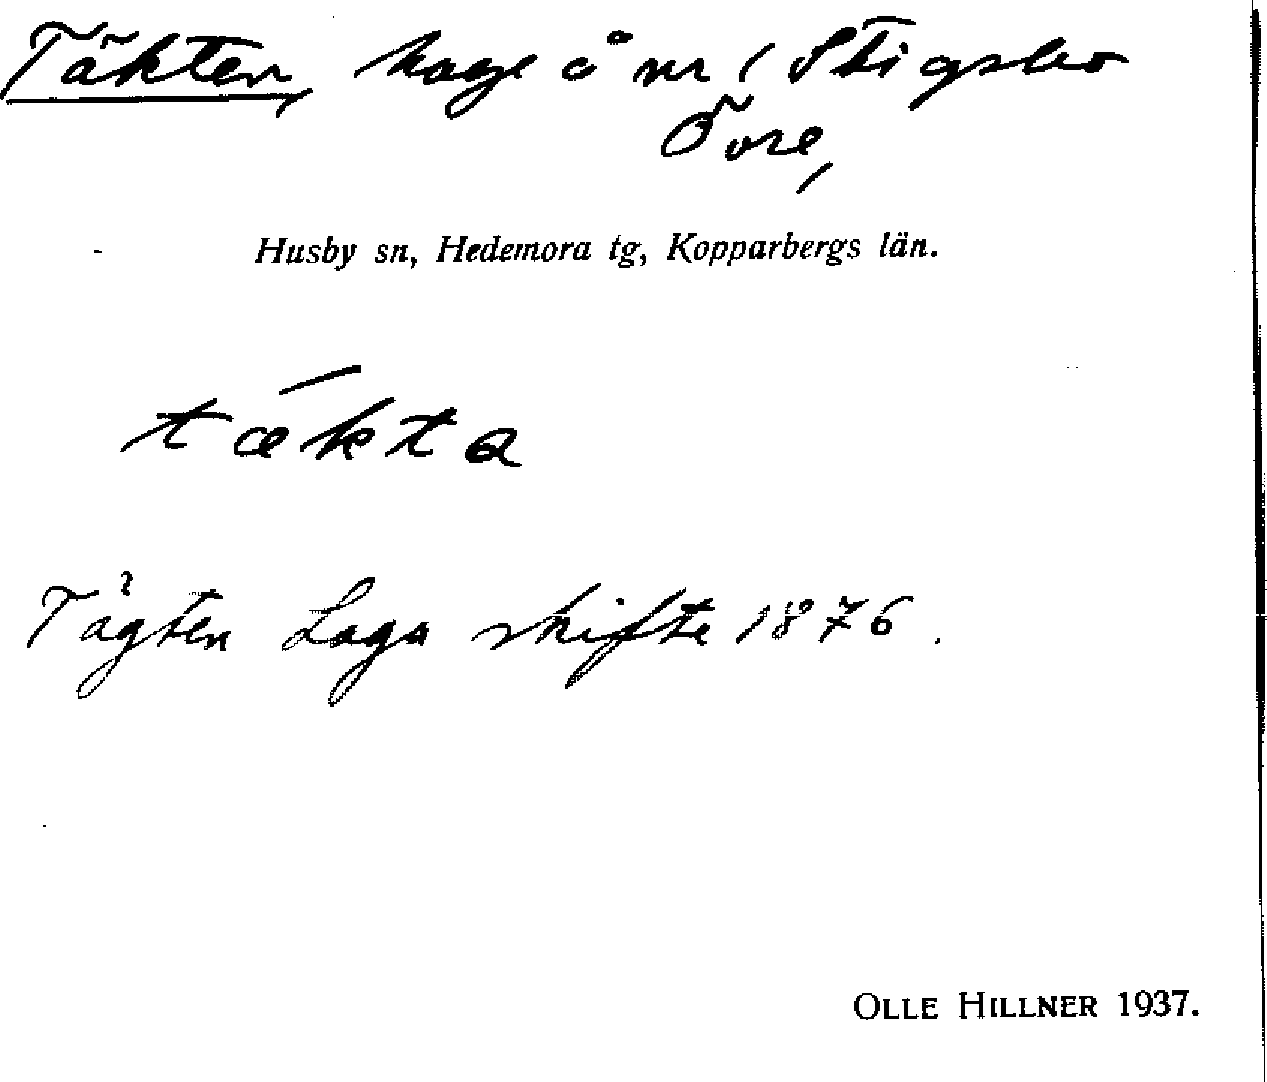 Täkten, hage å nr 1 Stigsbo
Övre,
Husby sn, Hedemora tg, Kopparbergs län.
tǽkta
Tägten Laga skifte 1876.
OLLE HILLNER 1937.